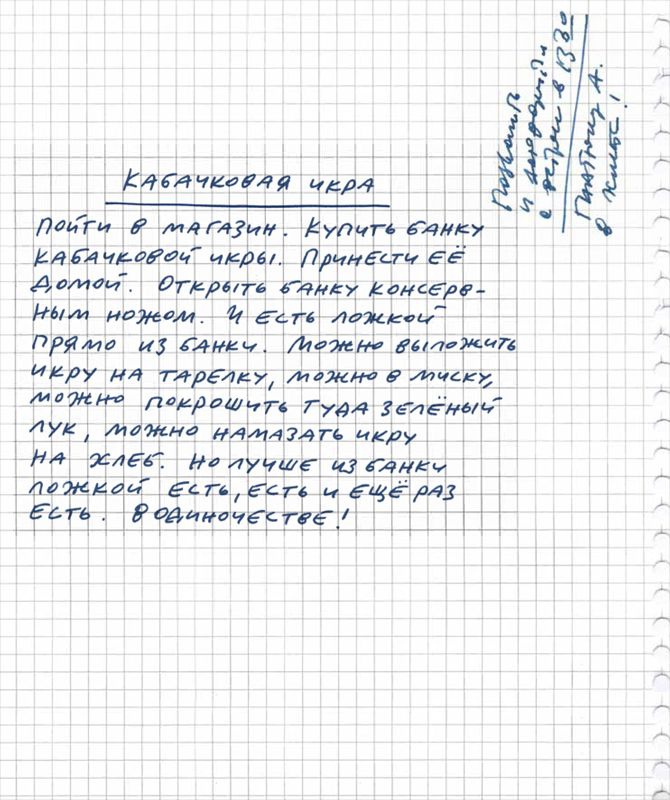 КАБАЧКОВАЯ ИКРА
ПОЙТИ В МАГАЗИН. КУПИТЬ БАНКУ
КАБАЧКОВОЙ ИКРЫ. ПРИНЕСТИ ЕЁ
ДОМОЙ. ОТКРЫТЬ БАНКУ КОНСЕРВ-
НЫМ НОЖОМ. И ЕСТЬ ЛОЖКОЙ
ПРЯМО ИЗ БАНКИ. МОЖНО ВЫЛОЖИТЬ
ИКРУ НА ТАРЕЛКУ, МОЖНО В МИСКУ,
МОЖНО ПОКРОШИТЬ ТУДА ЗЕЛЁНЫЙ
ЛУК, МОЖНО НАМАЗАТЬ ИКРУ
НА ХЛЕБ. НО ЛУЧШЕ ИЗ БАНКИ
ЛОЖКОЙ ЕСТЬ, ЕСТЬ И ЕЩЁ РАЗ
ЕСТЬ. В ОДИНОЧЕСТВЕ!
Позвонить
и договорить
о встрече в 13 30